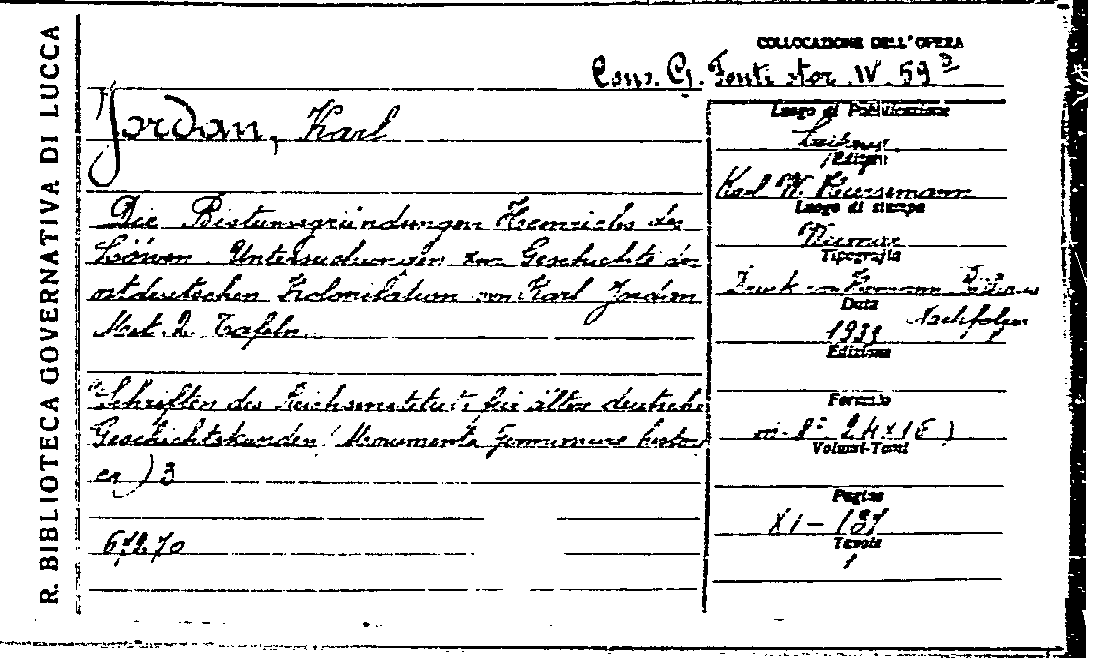 R. BIBLIOTECA GOVERNATIVA DI LUCCA
COLLOCAZIONE DELL'OPERA
Cons. G. Fonti stor. IV. 59
Jordan, Karl
Die Bistumsgründungen Heinrichs des
Löwen. Untersuchungen zur Geschichte der
ostdeutschen Kolonisation von Karl Jordan
Mit. 2. Tafeln.
Schriften des Reichsinstituts für ältere deutsche
Geschichtskunden (Monumenta Germaniae histori
ca) 3
67270
Luogo di Pubblicazione
Editore
Karl W. Hiersemann
Luogo di stampa
Tipografia
Druck von Hermann
Nachfolger
Data
1939
Edizione
Formato
in-8° 24x16)
Volumi-Tomi
Pagine
XI-137
Tavole
1